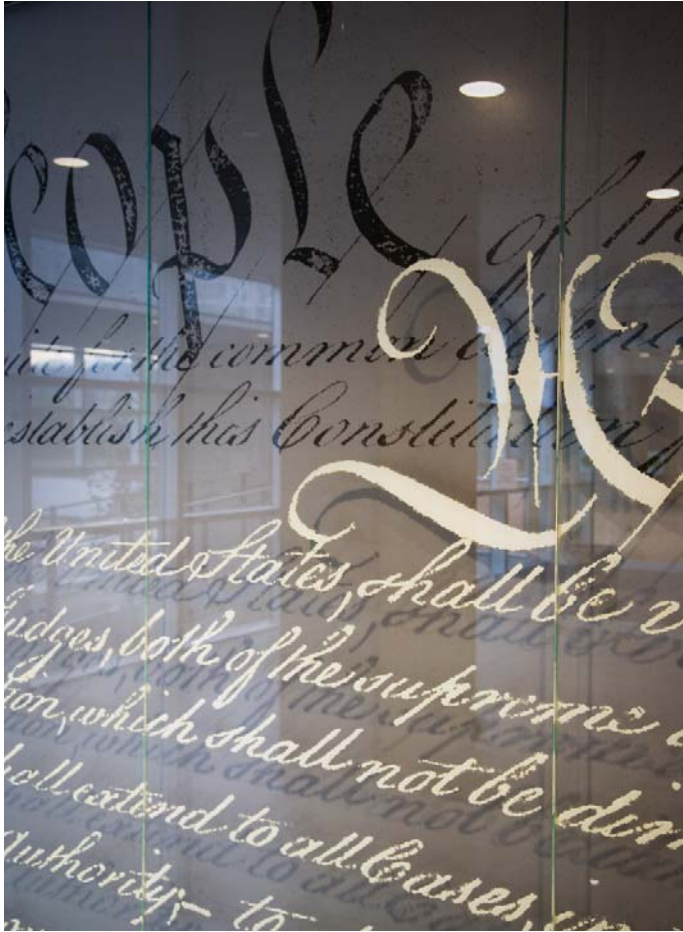 eople of th
ide for the common defenc
establish this Constitution f
W
the United States, shall be v
Judges, both of the supreme
tion, which shall not be dim
hall extend to all Cases, in
Authority;— to